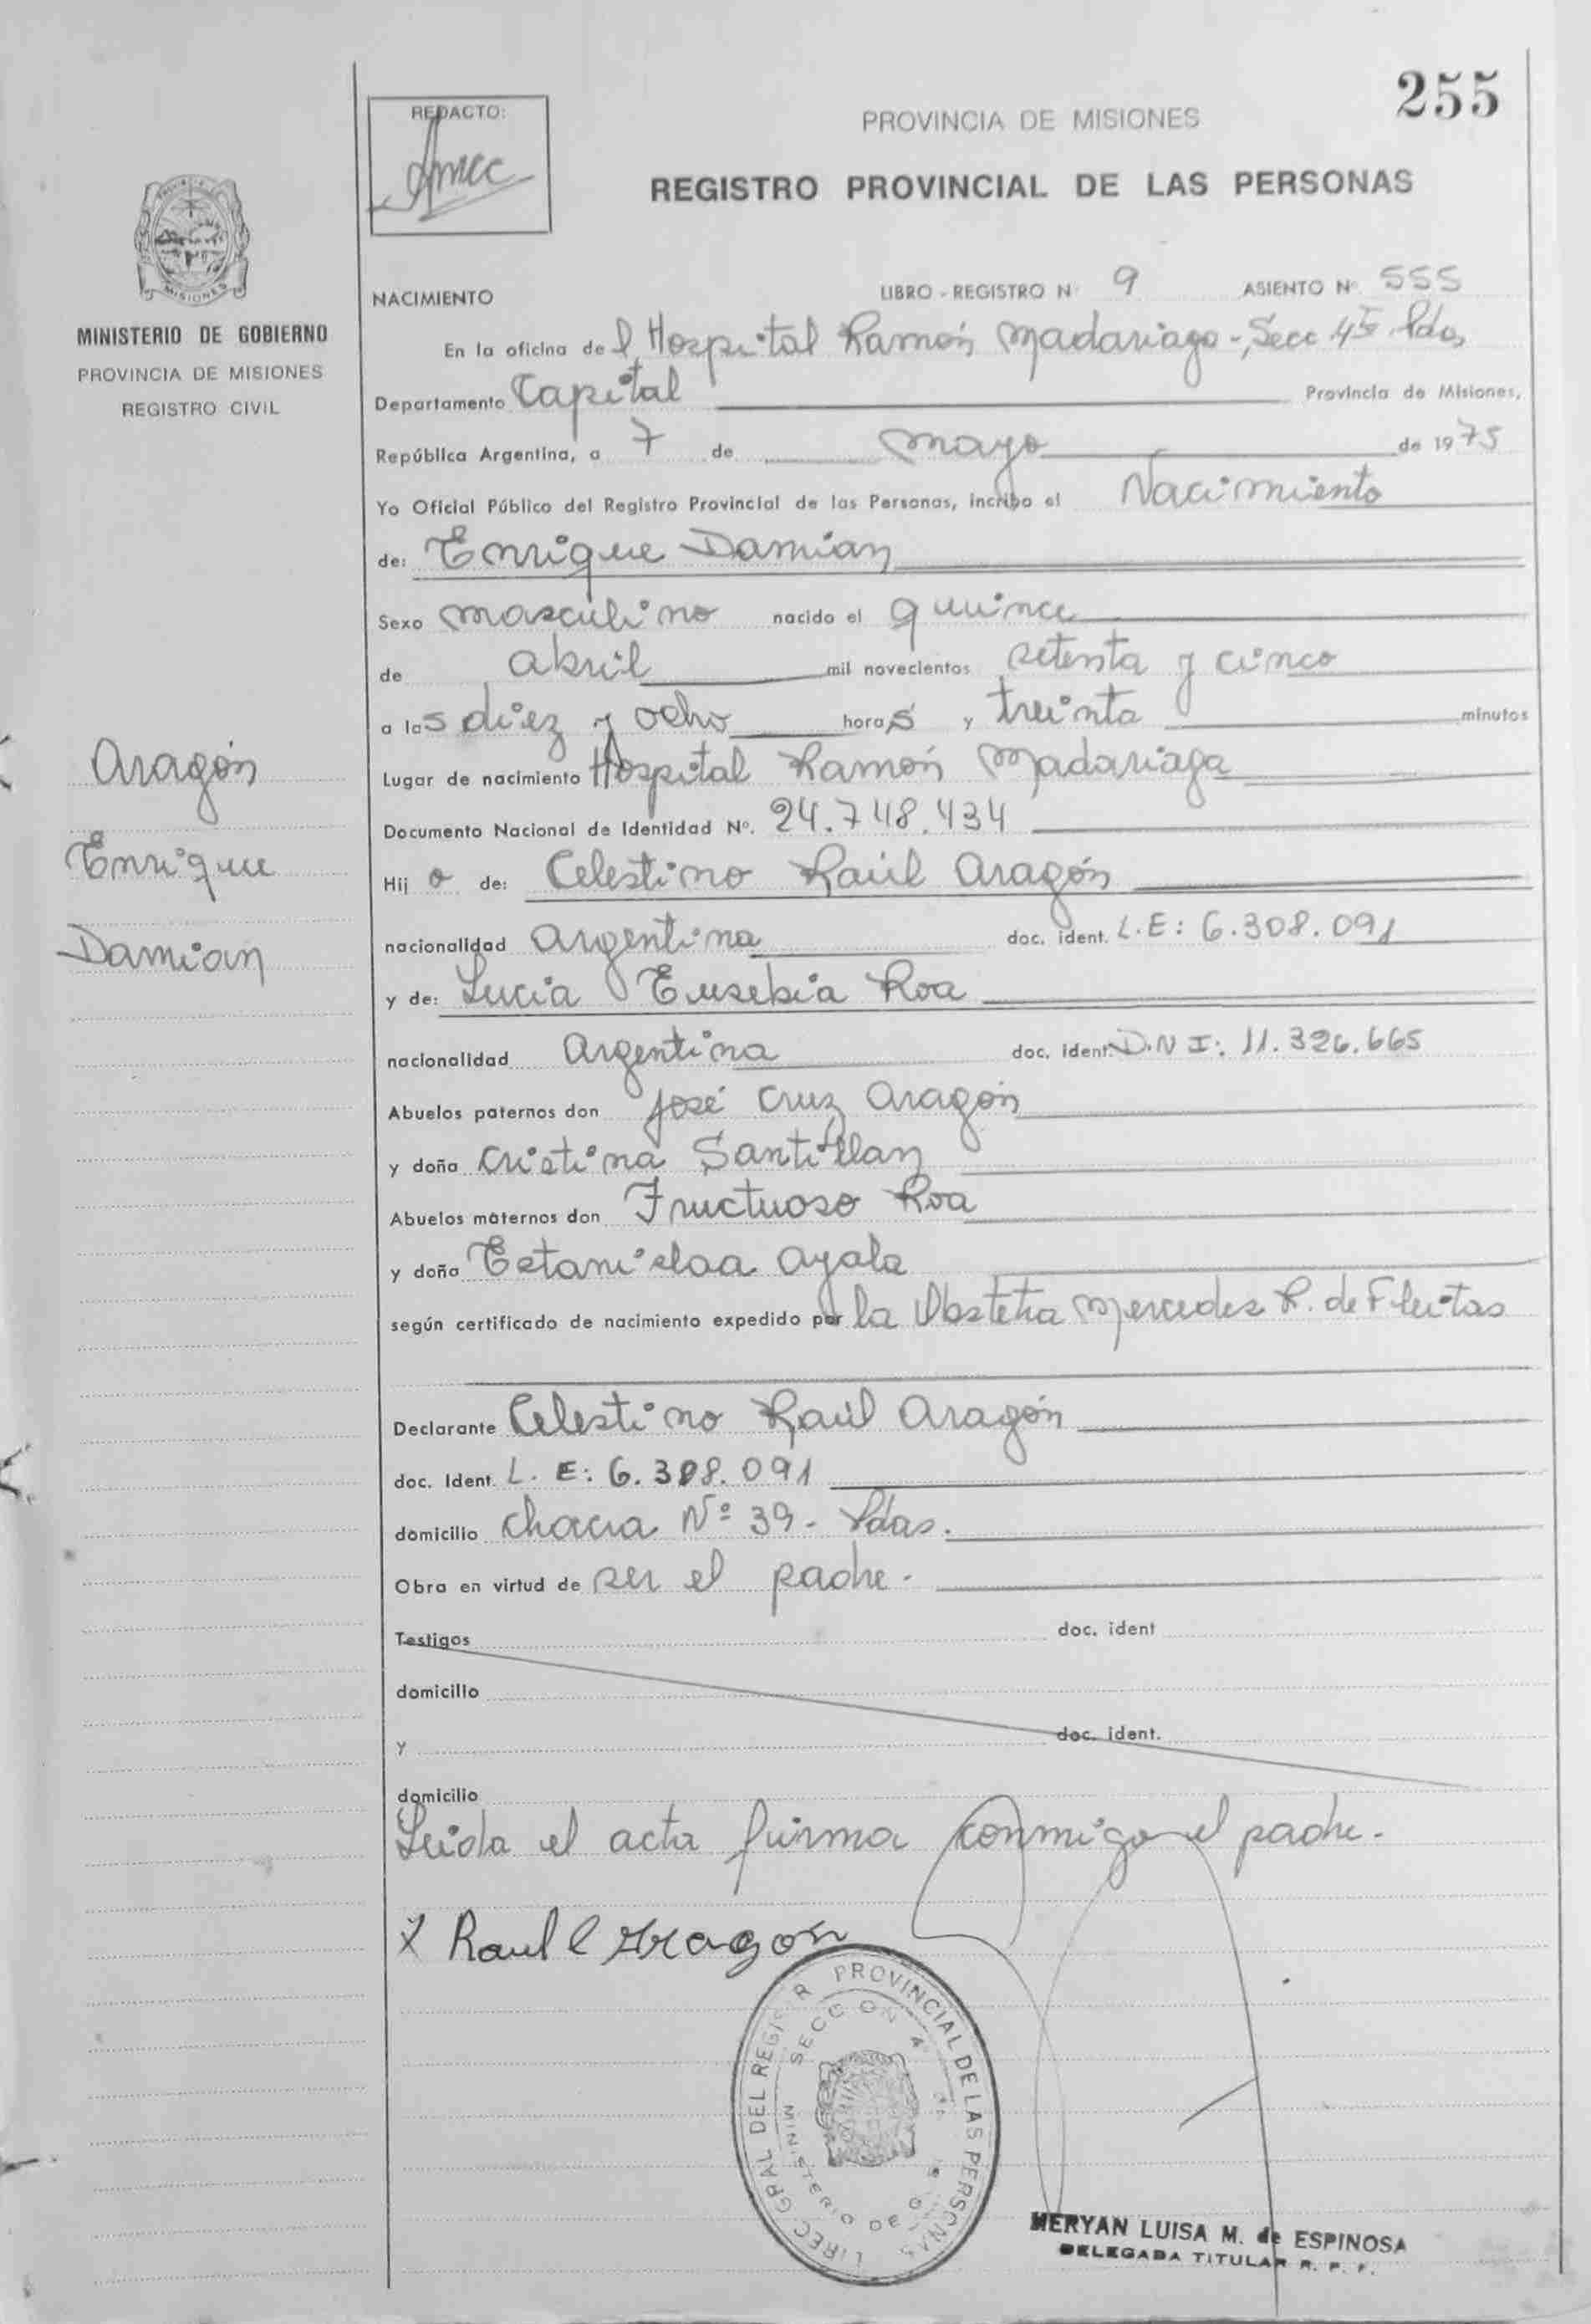 255
REDACTO:
PROVINCIA DE MISIONES
REGISTRO PROVINCIAL DE LAS PERSONAS
MISIONES
MINISTERIO DE GOBIERNO
PROVINCIA DE MISIONES
REGISTRO CIVIL
NACIMIENTO LIBRO - REGISTRO Nº 9 ASIENTO Nº 555
En la oficina del Hospital Ramón Madariaga -, Secc 4ta Pdas
Departamento Capital Provincia de Misiones,
República Argentina, a 7 de mayo de 1975
Yo Oficial Público del Registro Provincial de las Personas, incribo el Nacimiento
de: Enrique Damian
Sexo masculino nacido el quince
de abril mil novecientos setenta y cinco
a las diez y ocho horas y treinta minutos
Lugar de nacimiento Hospital Ramón Madariaga
Documento Nacional de Identidad Nº. 24.748.434
Hijo de: Celestino Raúl Aragón
nacionalidad Argentina doc. ident. L.E: 6.308.091
y de: Lucia Eusebia Roa
nacionalidad Argentina doc. ident. D.N I: 11.326.665
Abuelos paternos don José Cruz Aragón
y doña Cristina Santillan
Abuelos maternos don Fructuoso Roa
y doña Estanislaa Ayala
según certificado de nacimiento expedido por la Obstetra Mercedes R. de Fleitas
Declarante Celestino Raúl Aragón
doc. Ident. L. E: 6.308.091
domicilio chacra Nº 39 - Pdas.
Obra en virtud de ser el padre.
Testigos doc. ident
domicilio
y doc. ident.
domicilio
Leida el acta firma conmigo el padre.
X Raul C Aragon
Aragón
Enrique
Damian
PROVINCIAL DE LAS PERSONAS
MINISTERIO DE
MERYAN LUISA M. de ESPINOSA
DELEGADA TITULAR R. P. P.